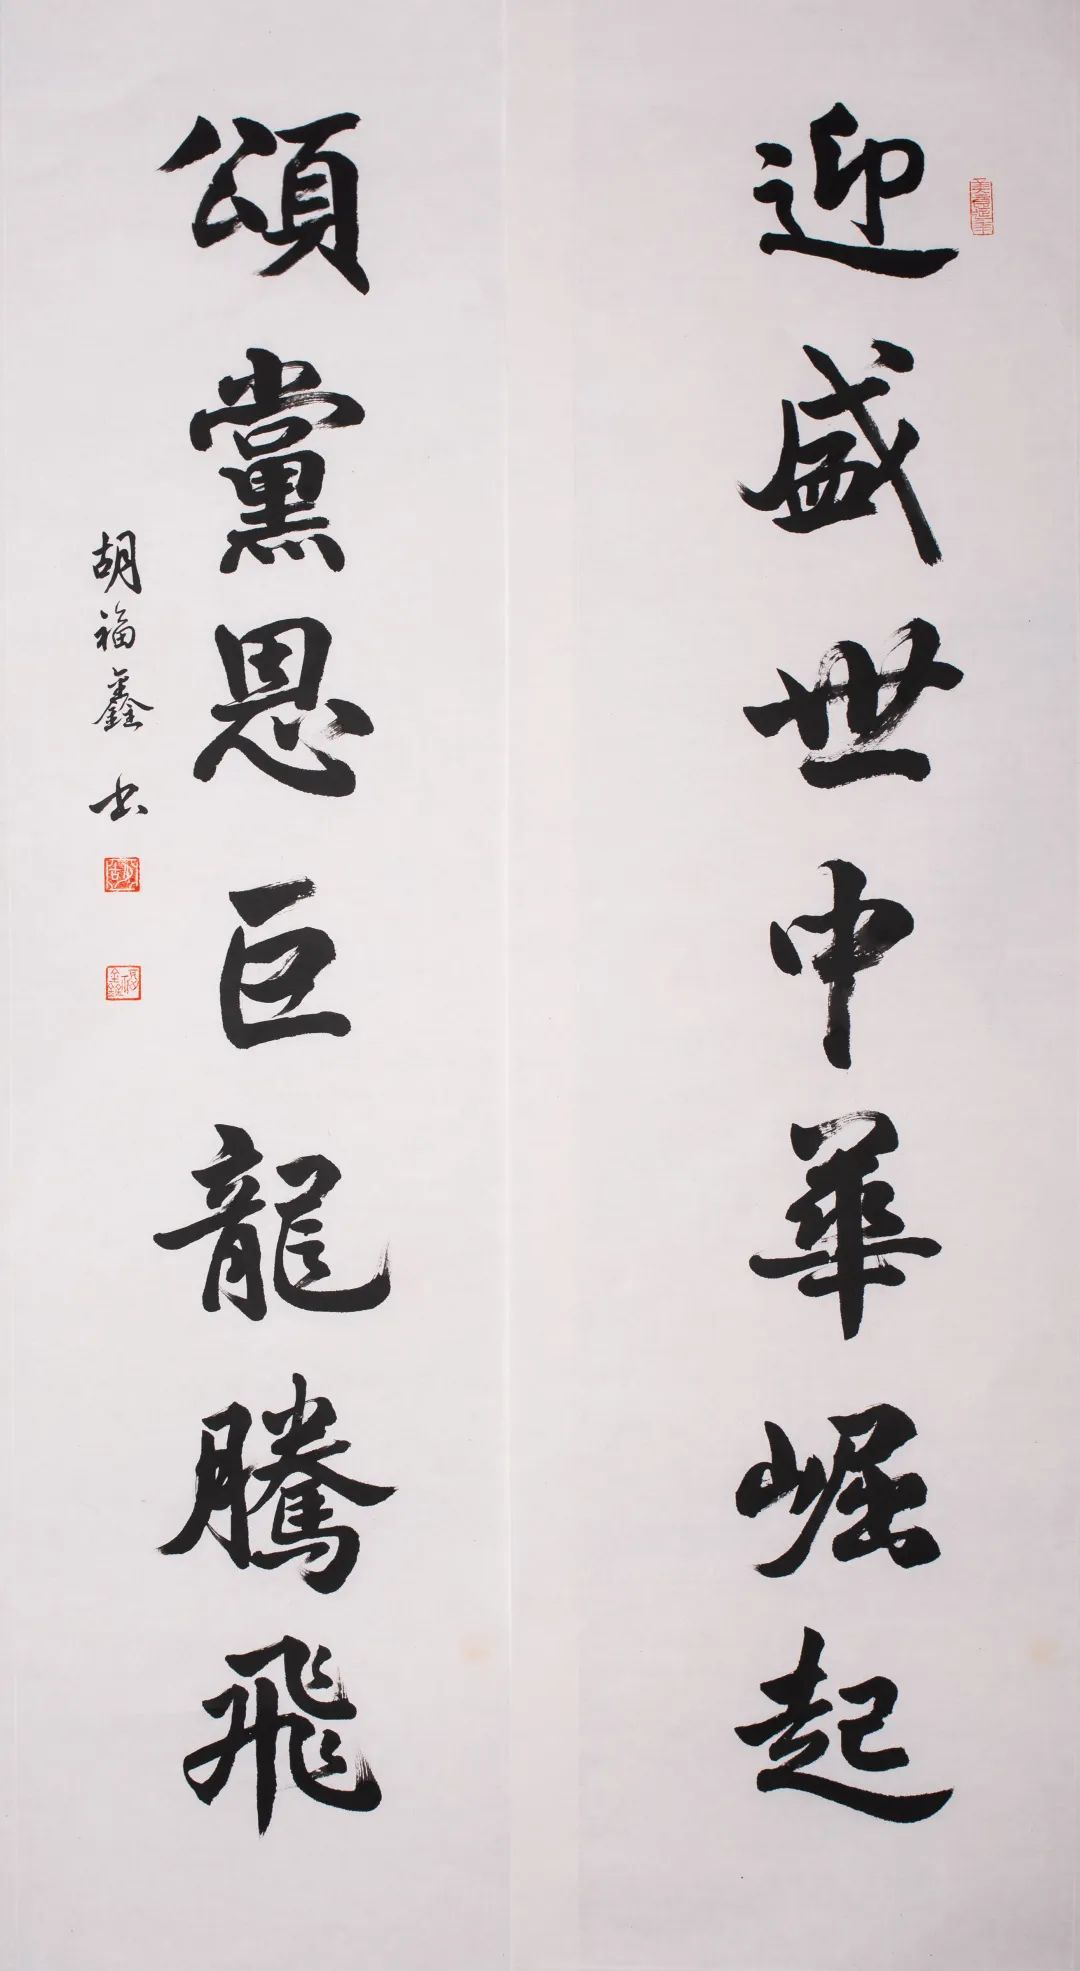 迎盛世中華崛起
頌黨恩巨龍騰飛
胡福鑫书